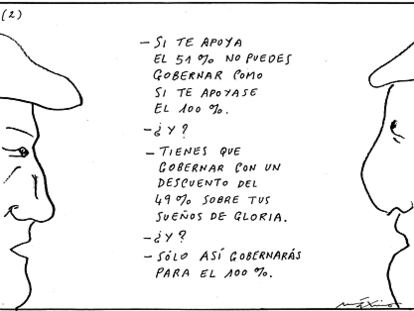 (2)
— SI TE APOYA
EL 51% NO PUEDES
GOBERNAR COMO
SI TE APOYASE
EL 100%.
— ¿Y?
— TIENES QUE
GOBERNAR CON UN
DESCUENTO DEL
49% SOBRE TUS
SUEÑOS DE GLORIA.
— ¿Y?
— SÓLO ASÍ GOBERNARÁS
PARA EL 100%.
MÁXIMO